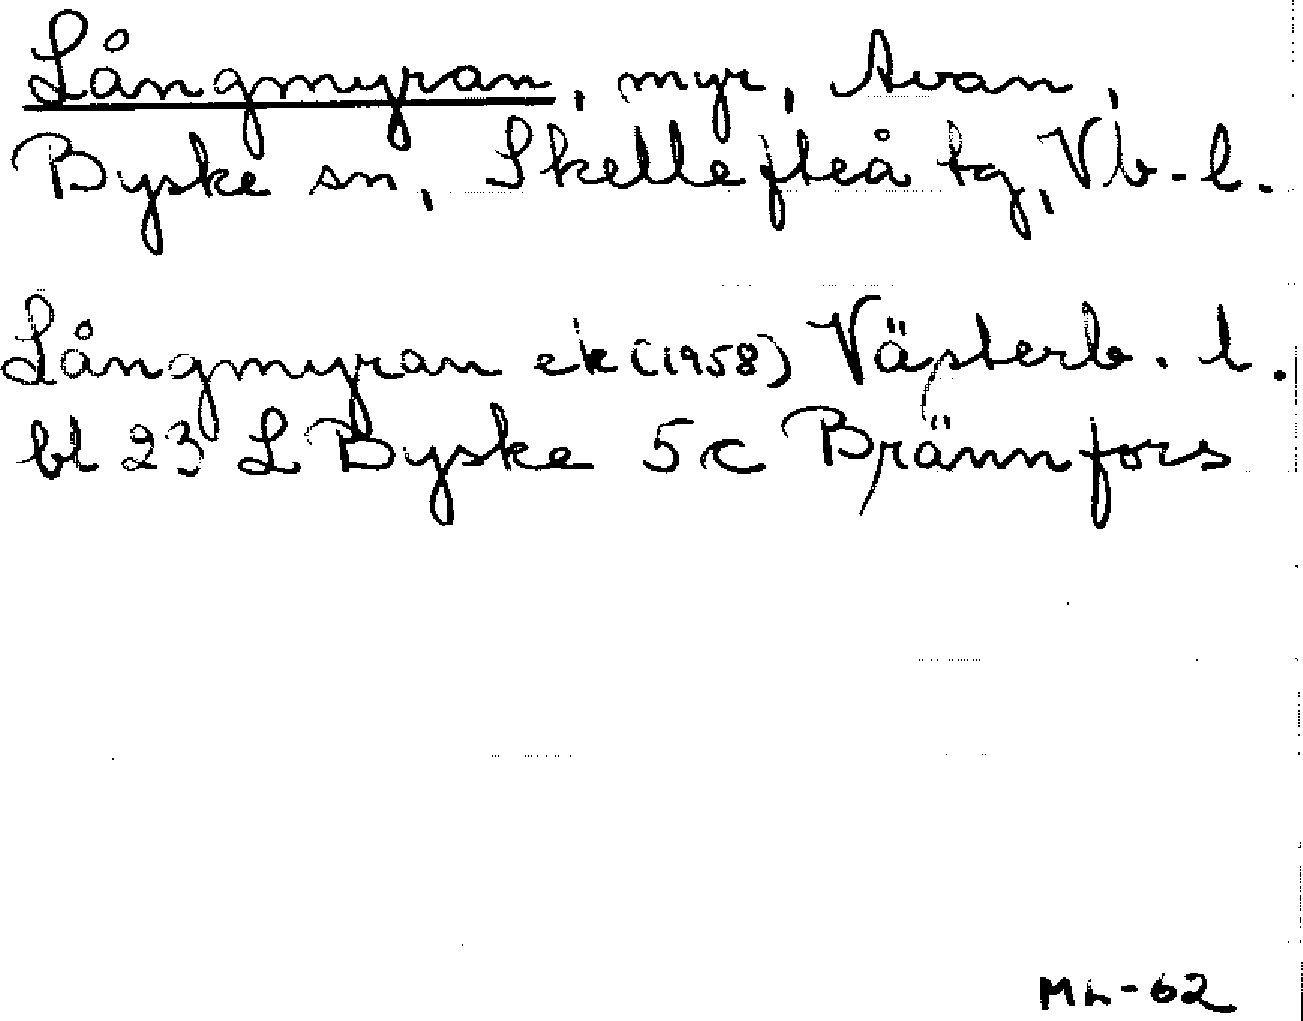 Långmyran, myr, Avan,
Byske sn, Skellefteå tg, Vb-l.
Långmyran ek (1958) Västerb. l.
bl 23 L Byske 5c Brännfors